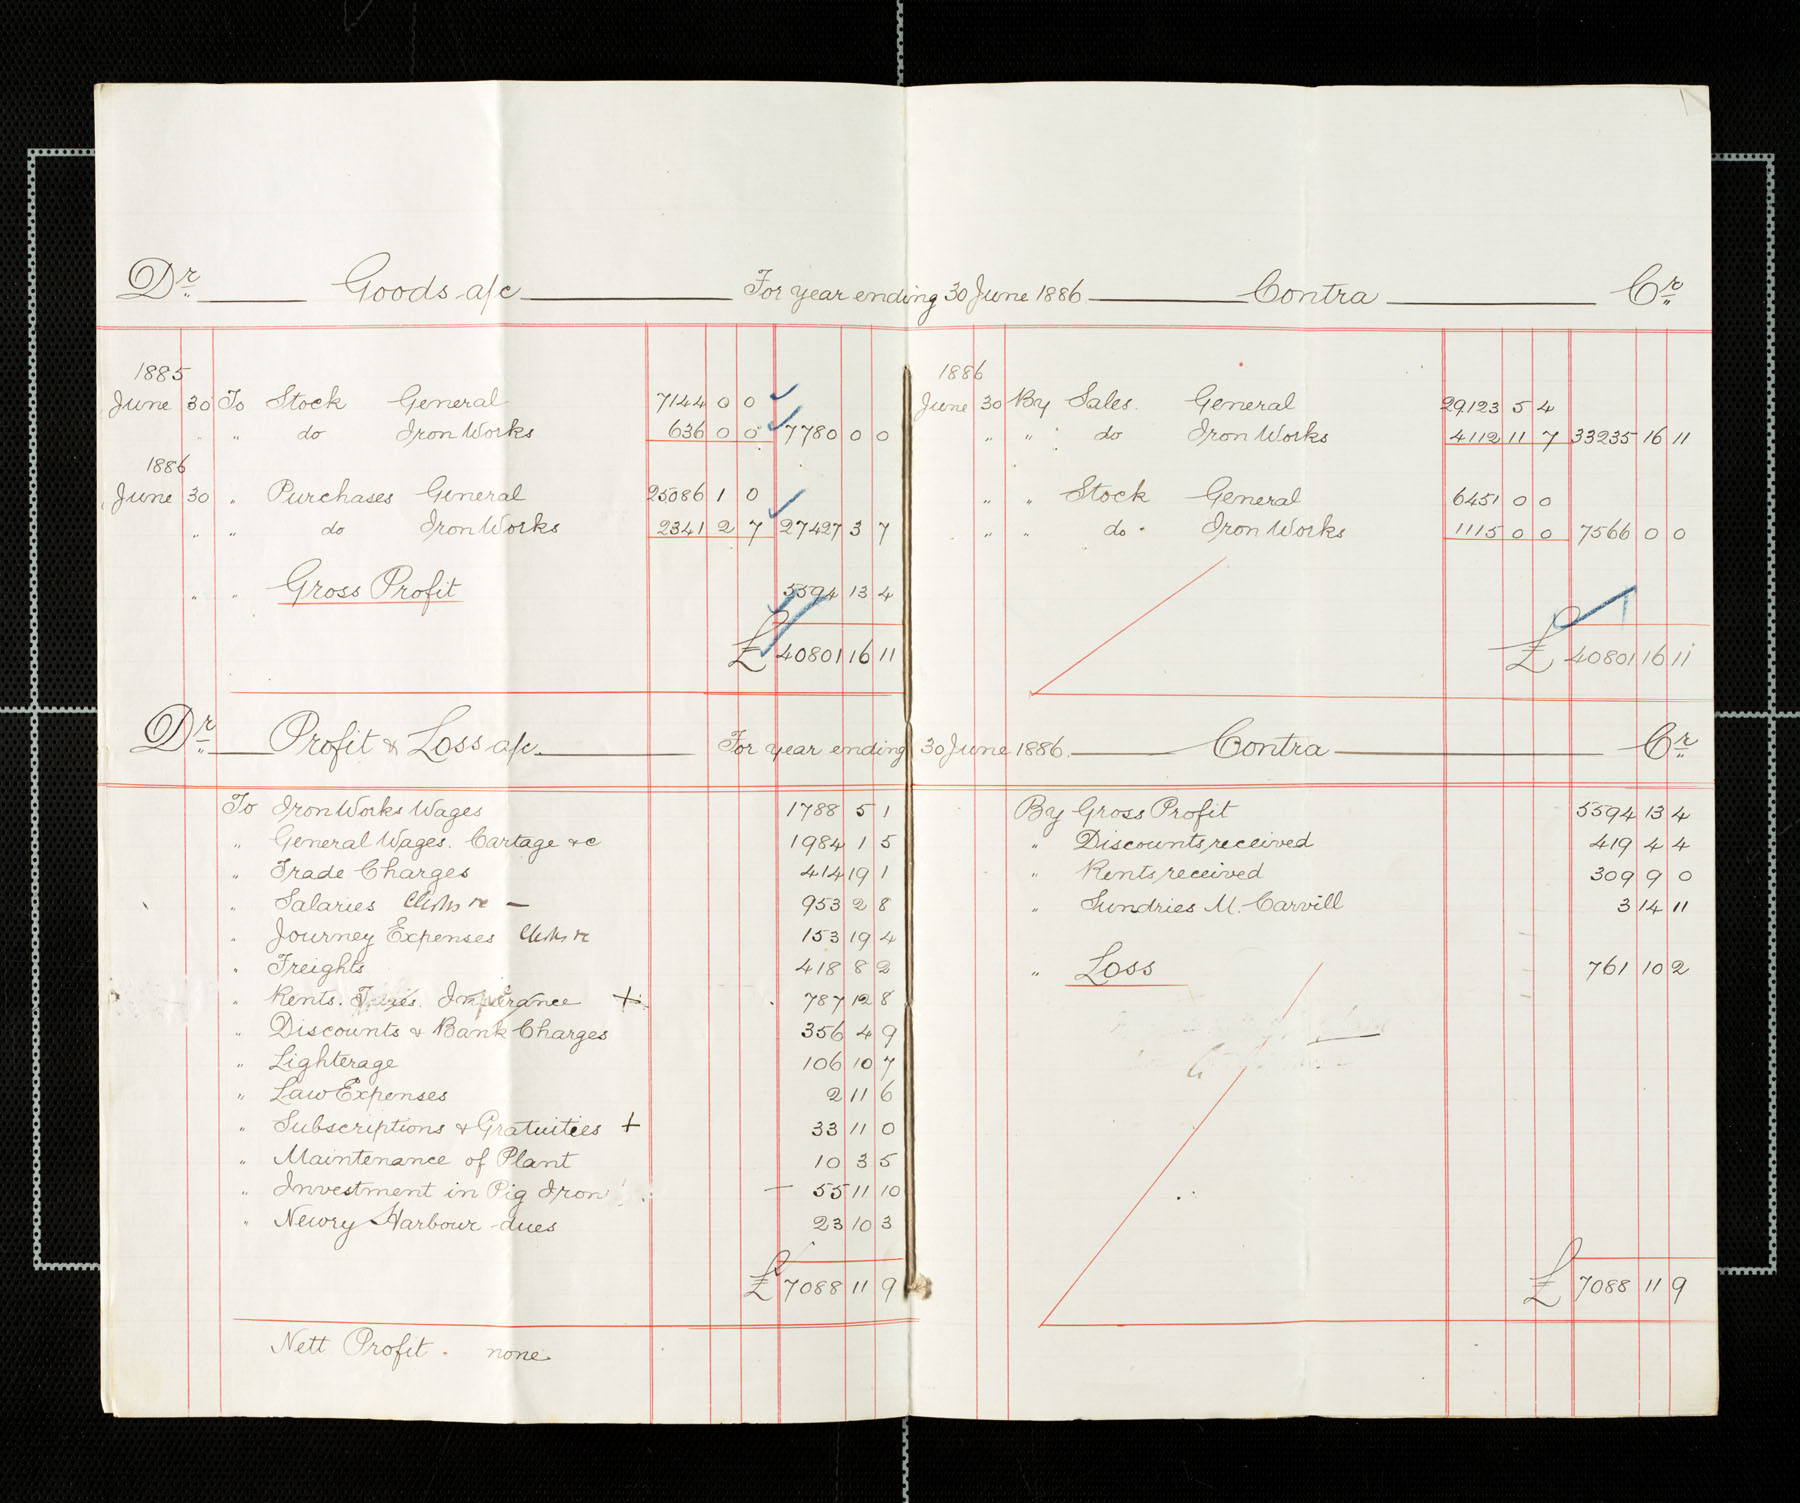 Dr Goods a/c For year ending 30 June 1886 Contra Cr
1885
June 30 To Stock General 7144 0 0
" " do Iron Works 636 0 0 7780 0 0
1886
June 30 " Purchases General 25086 1 0
" " do Iron Works 2341 2 7 27427 3 7
" " Gross Profit 5594 13 4
£ 40801 16 11
1886
June 30 By Sales. General 29123 5 4
" " do Iron Works 4112 11 7 33235 16 11
" " Stock General 6451 0 0
" " do Iron Works 1115 0 0 7566 0 0
£ 40801 16 11
Dr Profit & Loss a/c For year ending 30 June 1886. Contra Cr
To Iron Works Wages 1788 5 1
" General Wages. Cartage &c 1984 1 5
" Trade Charges 414 19 1
" Salaries 953 2 8
" Journey Expenses 153 19 4
" Freights 418 8 2
" Rents. Taxes. Insurance + 787 12 8
" Discounts & Bank Charges 356 4 9
" Lighterage 106 10 7
" Law Expenses 2 11 6
" Subscriptions & Gratuities + 33 11 0
" Maintenance of Plant 10 3 5
" Investment in Pig Iron 55 11 10
" Newry Harbour dues 23 10 3
£ 7088 11 9
Nett Profit. none
By Gross Profit 5594 13 4
" Discounts received 419 4 4
" Rents received 309 9 0
" Sundries M. Carvill 3 14 11
" Loss 761 10 2
£ 7088 11 9